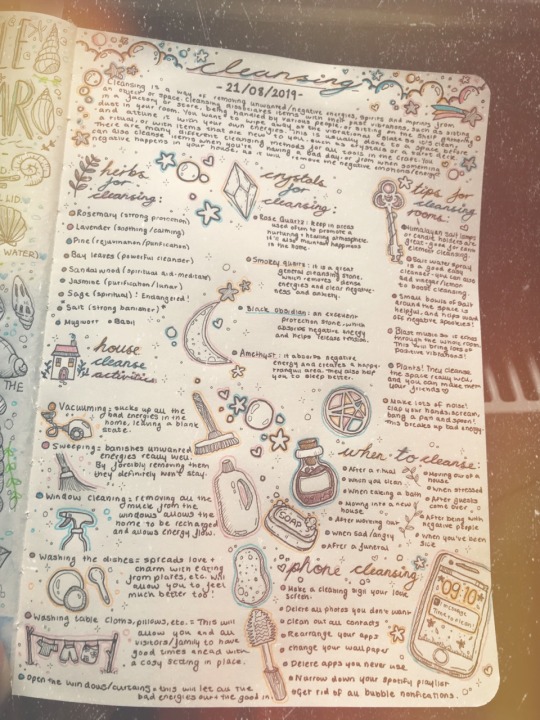 cleansing
-21/08/2019-
Cleansing is a way of removing unwanted/negative energies, spirits and impurity from
an object or space. Cleansing disconnects items with their past vibrations, such as sitting
in a factory or store, being handled by various people, or sitting on a shelf gathering
dust in your room. You want to get rid of
and attune it with your own energies. This is usually done to a space before
a ritual, or with items that are new to you, such as crystals or a tarot deck.
There are many different cleansing methods for all tools in the craft. You
can also cleanse items when you're having a bad day, or from when something
negative happens in your house, as it will remove the negative emotions/energy!
herbs
for
cleansing:
Rosemary (strong protection)
Lavender (soothing/calming)
Pine (rejuvination/purification)
Bay leaves (powerful cleanser)
Sandalwood (spiritual aid-medicine)
Jasmine (purification/lunar)
Sage (spiritual)! Endangered!
Salt (strong banisher)*
Mugwort • Basil
crystals
for
cleansing:
Rose Quartz: keep in areas
used often to promote a
nurturing + healthy atmosphere.
it'll also maintain happiness
in the home.
Smokey quartz: it is a great
general cleansing stone,
which removes dense
energies and clear negative-
ness and anxiety.
Black obsidian: an excellent
protection stone, which
absorbs negative energy
and helps release tension.
Amethyst: it absorbs negative
energy and creates a happy,
tranquil area. They also help
you to sleep better.
tips for
cleansing
rooms:
Himalayan salt lamps
or candle holders are
great - good for some
element cleansing.
Salt water spray
is a good easy
cleanser. You can also
add vinegar/lemon
to boost cleansing.
Small bowls of salt
around the space is
helpful, and helps ward
off negative spookies!
Blast music so it echos
through the whole room.
This will bring lots of
positive vibrations!
Plants! They cleanse
the space really well,
and you can make them
your friends♡
Make lots of noise!
clap your hands, scream,
bang a pan and spoon!
this breaks up bad energy.
house
cleanse
activities
Vacuuming: sucks up all the
bad energies in the
home, leaving a blank
slate.
Sweeping: banishes unwanted
energies really well.
By forcibly removing them
they definitely won't stay.
Window cleaning: removing all the
muck from the
windows allows the
home to be recharged
and allows energy flow.
Washing the dishes = spreads love +
charm with eating
from plates, etc. will
allow you to feel
much better too!
Washing table cloths, pillows, etc. = This will
allow you and all
visitors/family to have
good times ahead with
a cosy setting in place.
Open the windows/curtains = this will let all the
bad energies out + the good in.
SOAP
when to cleanse:
After a ritual
When you clean
When taking a bath
Moving into a new
house
After working out
when sad/angry
After a funeral
Moving out of a
house
when stressed
After guests
come over
After being with
negative people
When you've been
sick
phone cleansing
Make a cleansing sigil your lock
screen.
Delete all photos you don't want
clean out all contacts
Rearrange your apps
change your wallpaper
Delete apps you never use
Narrow down your spotify playlist
Get rid of all bubble notifications.
09:10
Time to clean!